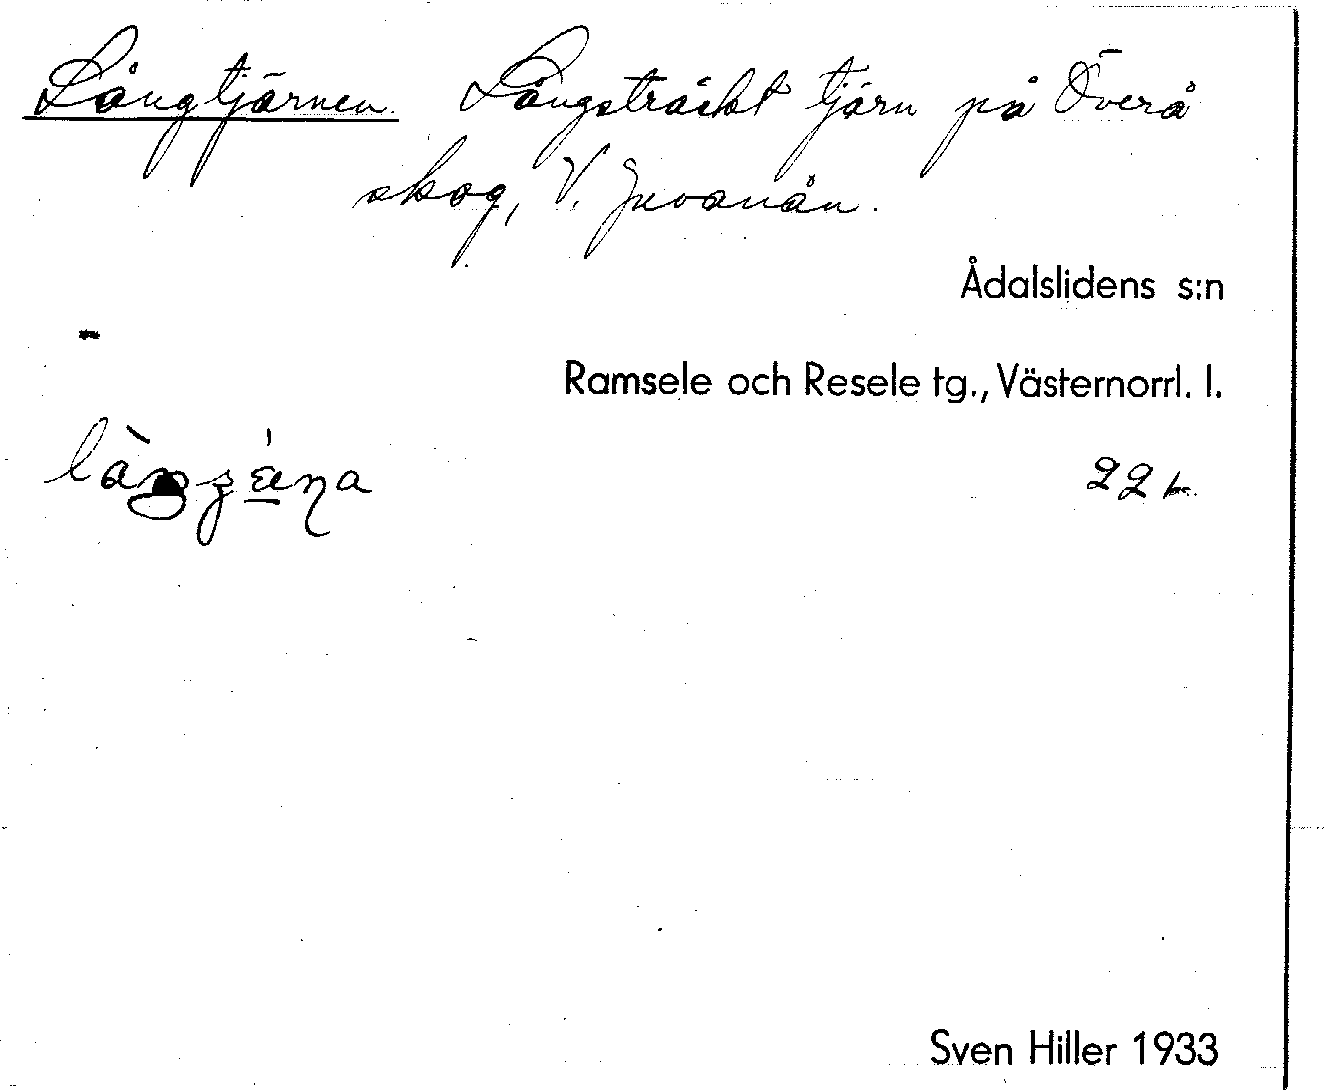 Långtjärnen. Långsträckt tjärn på Överå
skog, V. Juvanån.
Ådalslidens s:n
Ramsele och Resele tg., Västernorrl. l.
22
Sven Hiller 1933